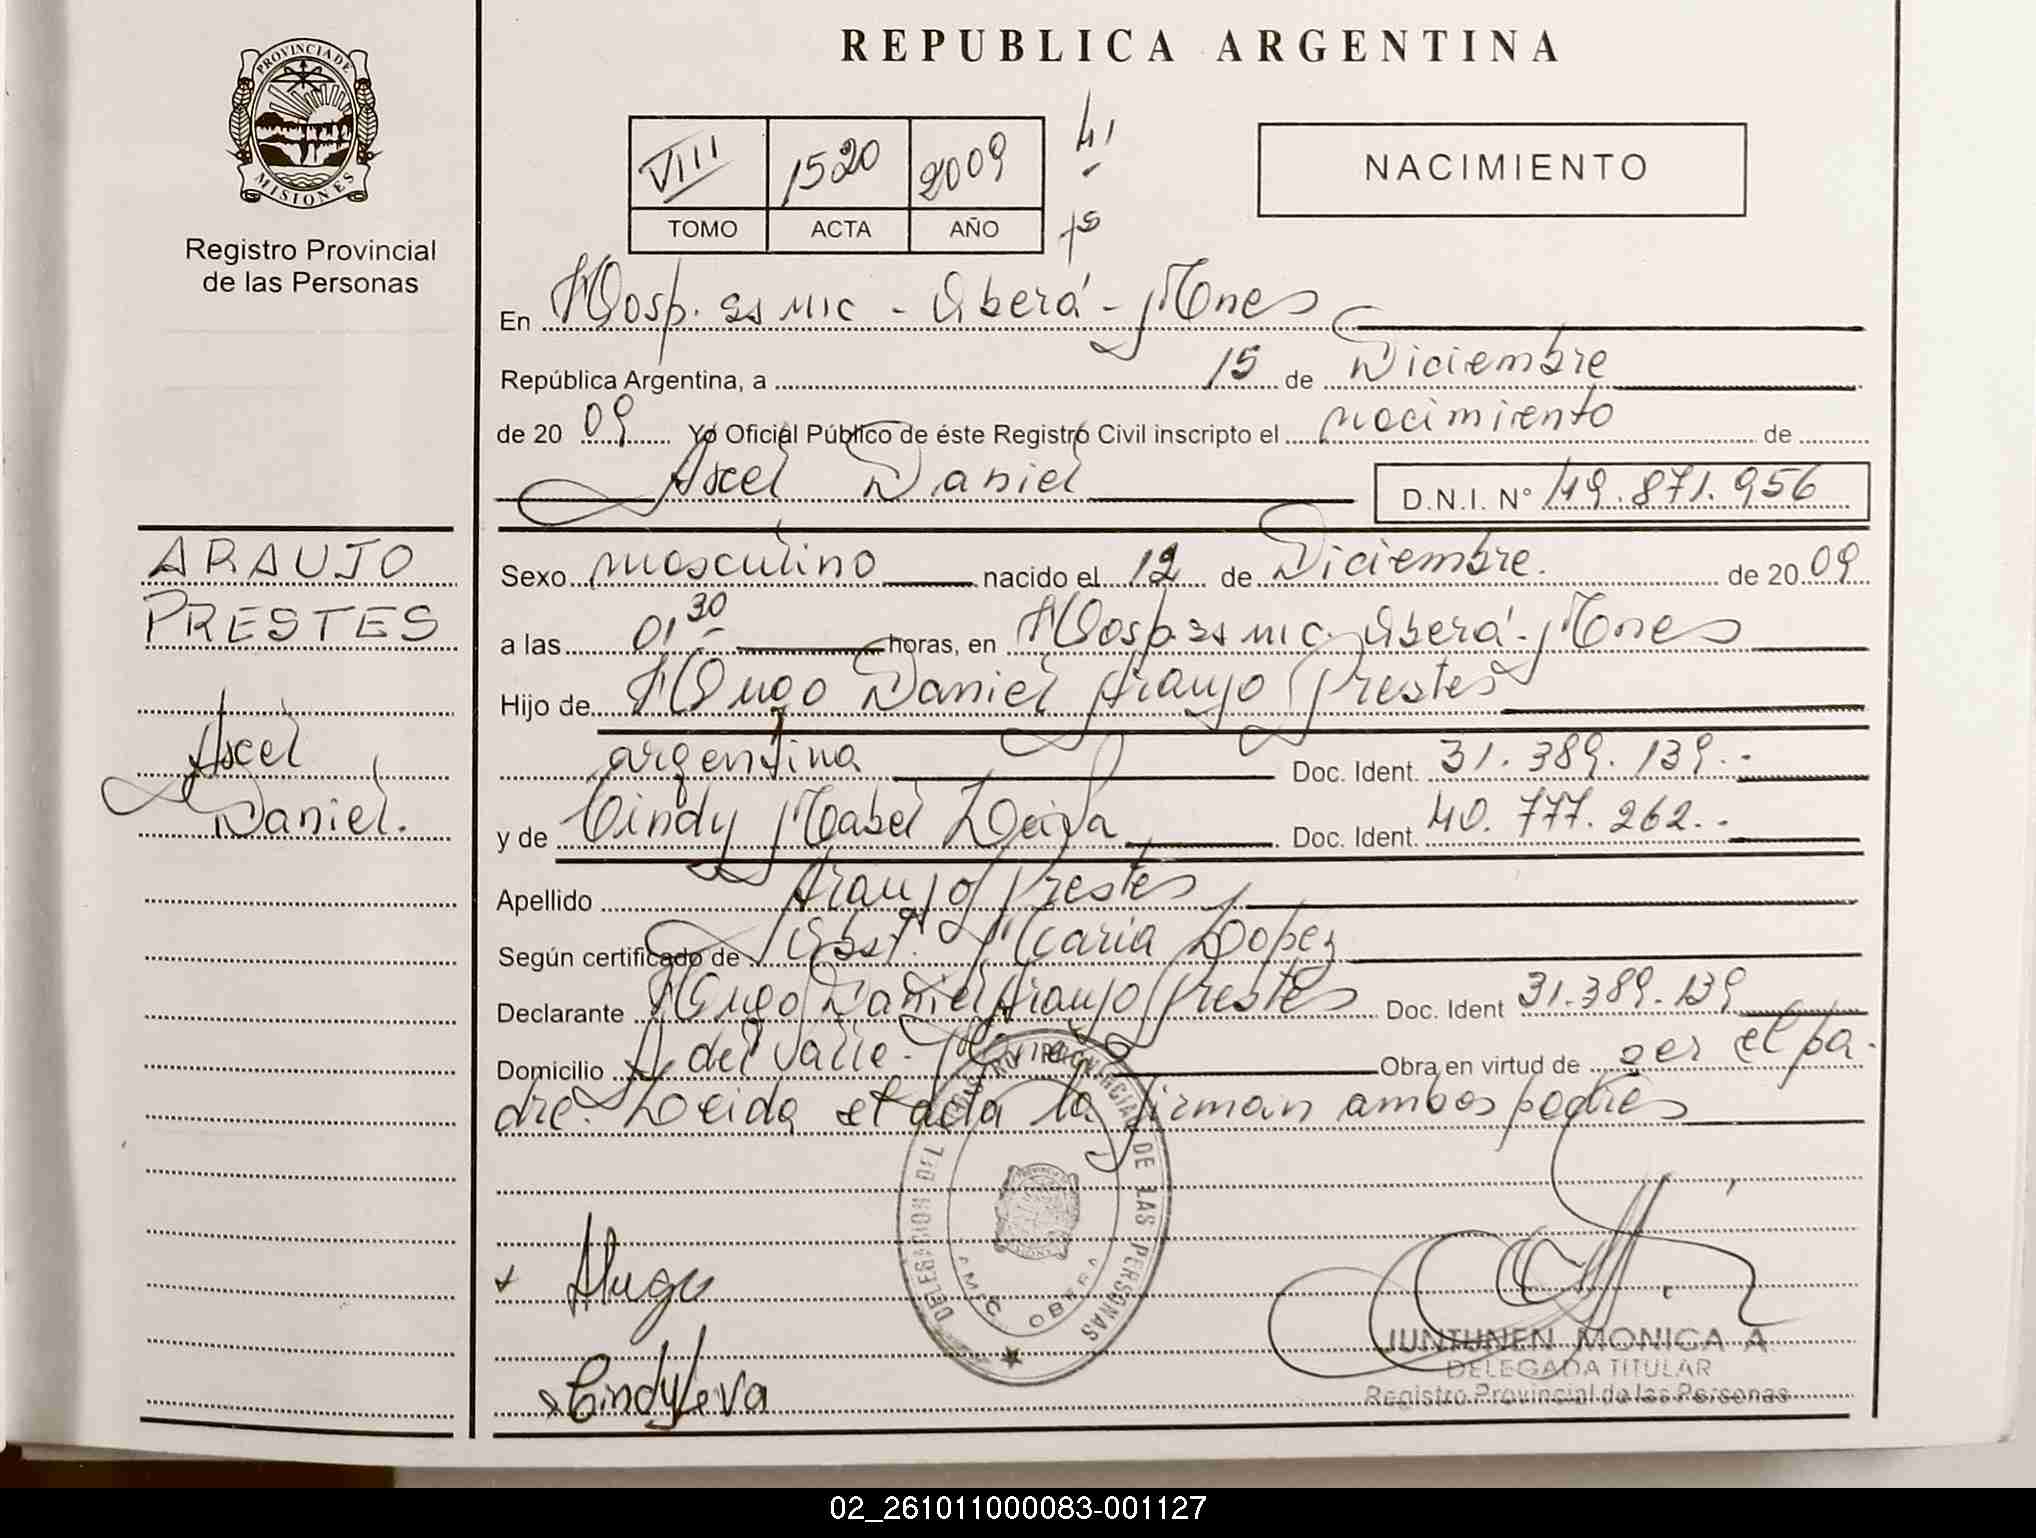 REPUBLICA ARGENTINA
PROVINCIA DE
MISIONES
Registro Provincial
de las Personas
VIII 1520 2009 41
TOMO ACTA AÑO
NACIMIENTO
En Hosp. ss mic - Oberá - Mnes
República Argentina, a 15 de Diciembre
de 20 09 Yo Oficial Público de éste Registro Civil inscripto el nacimiento de
Axel Daniel D.N.I. N° 49.871.956
ARAUJO
PRESTES
Axel
Daniel.
Sexo masculino nacido el 12 de Diciembre. de 20 09
a las 01 30 horas, en Hosp. ss mic. Oberá - Mnes
Hijo de Hugo Daniel Araujo Prestes
argentina Doc. Ident. 31.389.139.-
y de Cindy Mabel Leiva Doc. Ident. 40.777.262.-
Apellido Araujo Prestes
Según certificado de Obst. Maria Lopez
Declarante Hugo Daniel Araujo Prestes Doc. Ident 31.389.139
Domicilio A del Valle - Mnes Obra en virtud de ser el pa-
dre. Leida el acta la firman ambos padres
DELEGACION DEL REGISTRO PROVINCIAL DE LAS PERSONAS
OBERA
Hugo
x Cindy Leiva
JUNTUNEN MONICA A
DELEGADA TITULAR
Registro Provincial de las Personas
02_261011000083-001127